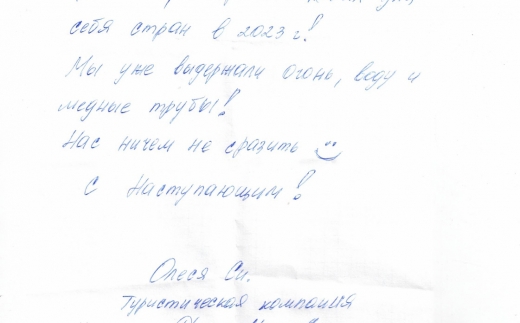 себя стран в 2023 г!
Мы уже выдержали огонь, воду и
медные трубы!
Нас ничем не сразить
С Наступающим!
Олеся Си.
Туристическая компания